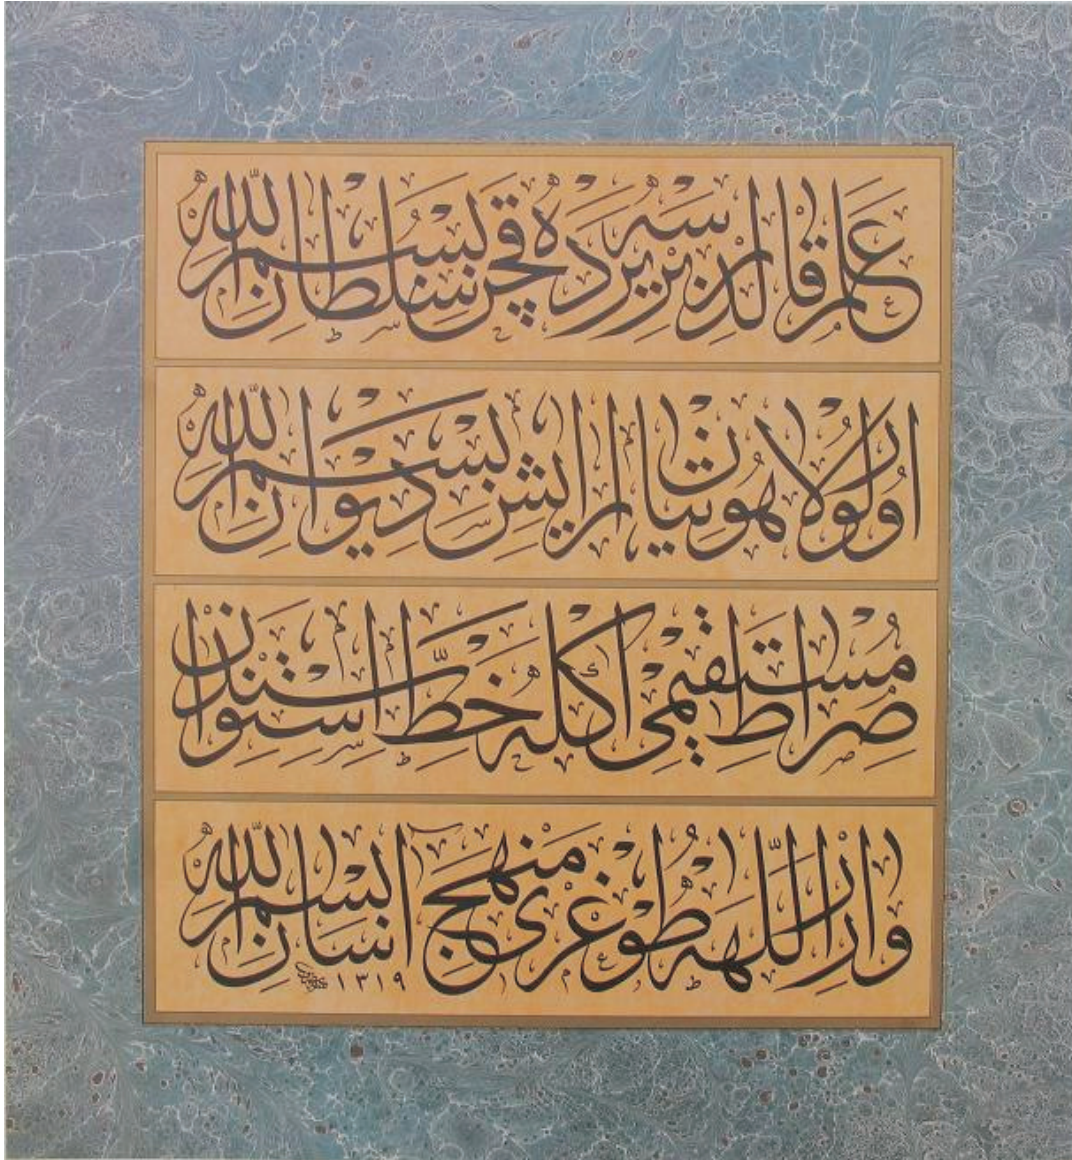 علم قالدرسه بر یرده قچن سلطان بسم الله
اولور لاهوتیان آرایش دیوان بسم الله
صراط مستقیمی اكله خط استواسندن
وارر اللهه طوغری منهج آسان بسم الله
١٣١٩